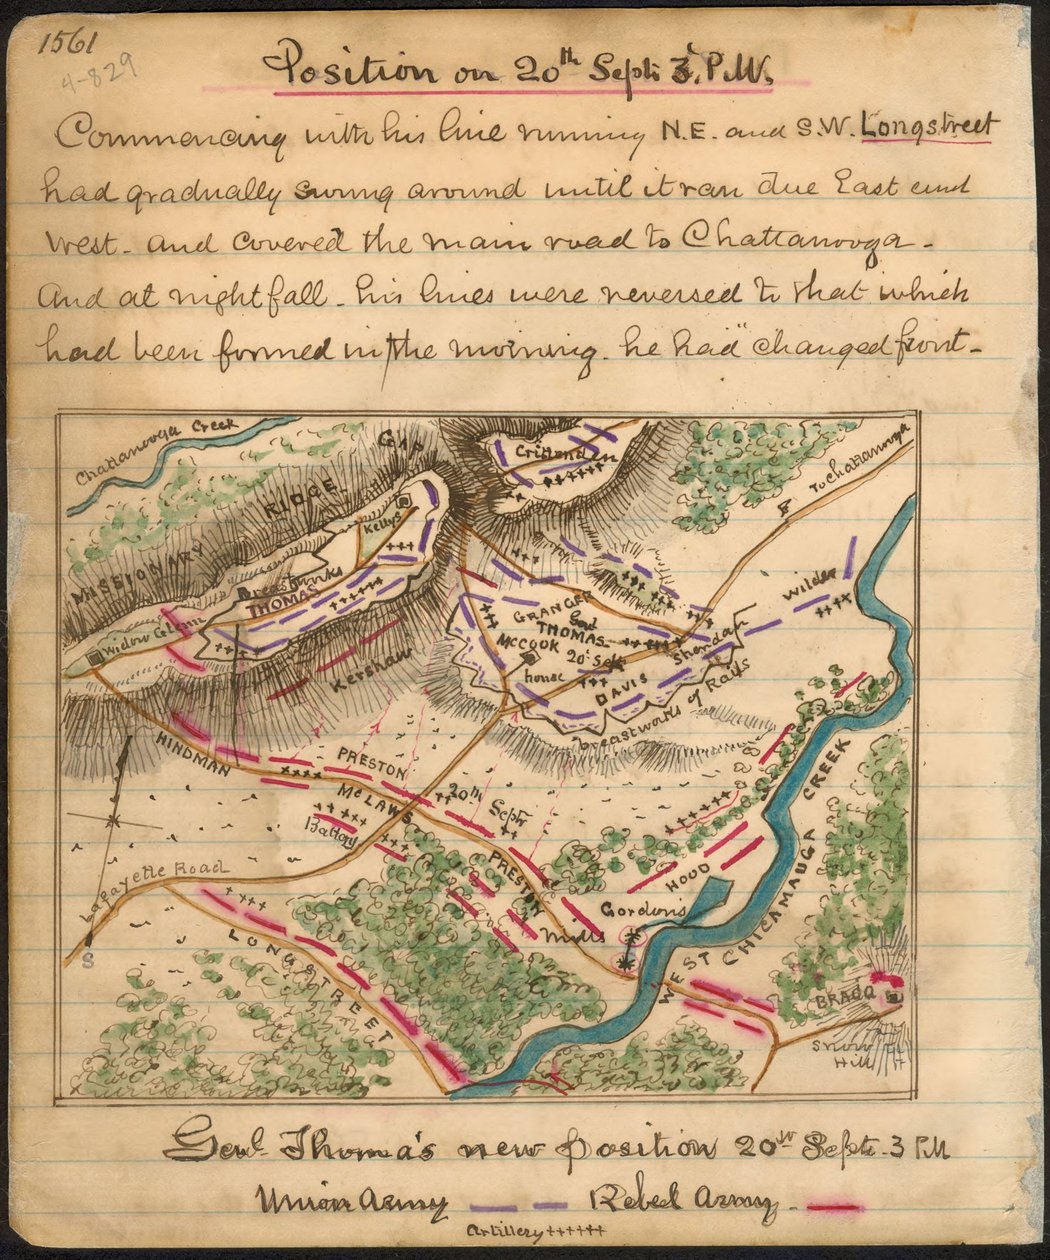 1561
4-829
Position on 20th Sept: 3, P.M.
Commencing with his line running N.E. and S.W. Longstreet
had gradually swung around until it ran due East and
West - and covered the main road to Chattanooga -
And at nightfall - his lines were reversed to that which
had been formed in the morning. he had "changed front -
Chattanooga Creek
GAP
Crittenden
To Chattanooga
RIDGE
Kellys
MISSIONARY
Breastworks
THOMAS
Wilder
GRANGER
Genl
THOMAS
Widow Glenn
McCOOK 20' Sept
Sheridan
Kershaw
house
DAVIS
breastworks of Rails
HINDMAN
PRESTON
McLAWS
20th Sept
Battery
CREEK
PRESTON
HOOD
Lafayette Road
Gordon's
Mills
CHICAMAUGA
LONGSTREET
WEST
S
BRAGG
Snow
Hill
Genl Thomas's new position 20th Sept - 3 PM
Union Army Rebel Army -
Artillery ++++++